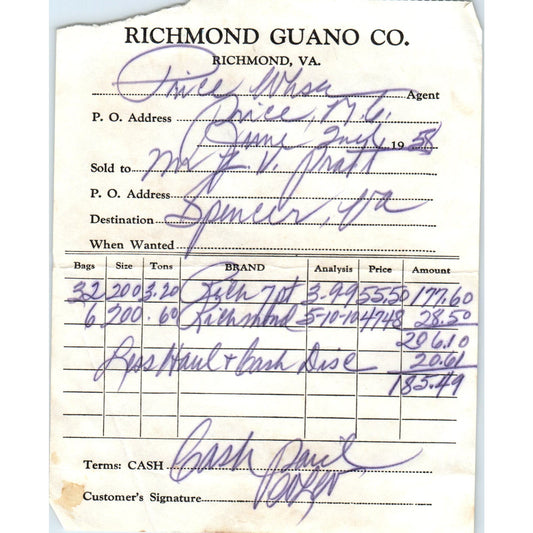 RICHMOND GUANO CO.
RICHMOND, VA.
Price Whse Agent
P. O. Address Price, N.C.
June 2nd, 1958
Sold to Mr V. Pratt
P. O. Address
Destination Spencer, Va
When Wanted
Bags Size Tons BRAND Analysis Price Amount
32 200 3.20 Rich 3-9-9 55.50 177.60
6 200 .60 Richmond 5-10-10 4748 28.50
206.10
Less Haul + Cash Disc 20.61
185.49
Terms: CASH Cash Paid
Customer's Signature